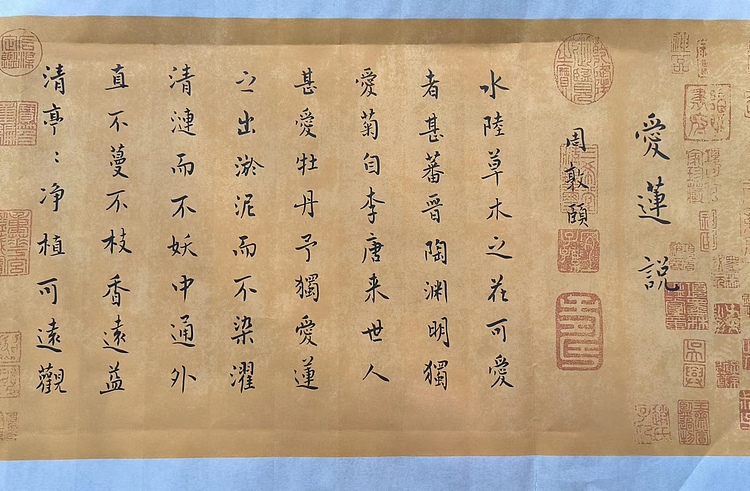 愛蓮説
周敦頤
水陸草木之花可愛
者甚蕃晋陶渊明獨
愛菊自李唐来世人
甚愛牡丹予獨愛蓮
之出淤泥而不染濯
清漣而不妖中通外
直不蔓不枝香遠益
清亭〻净植可遠觀